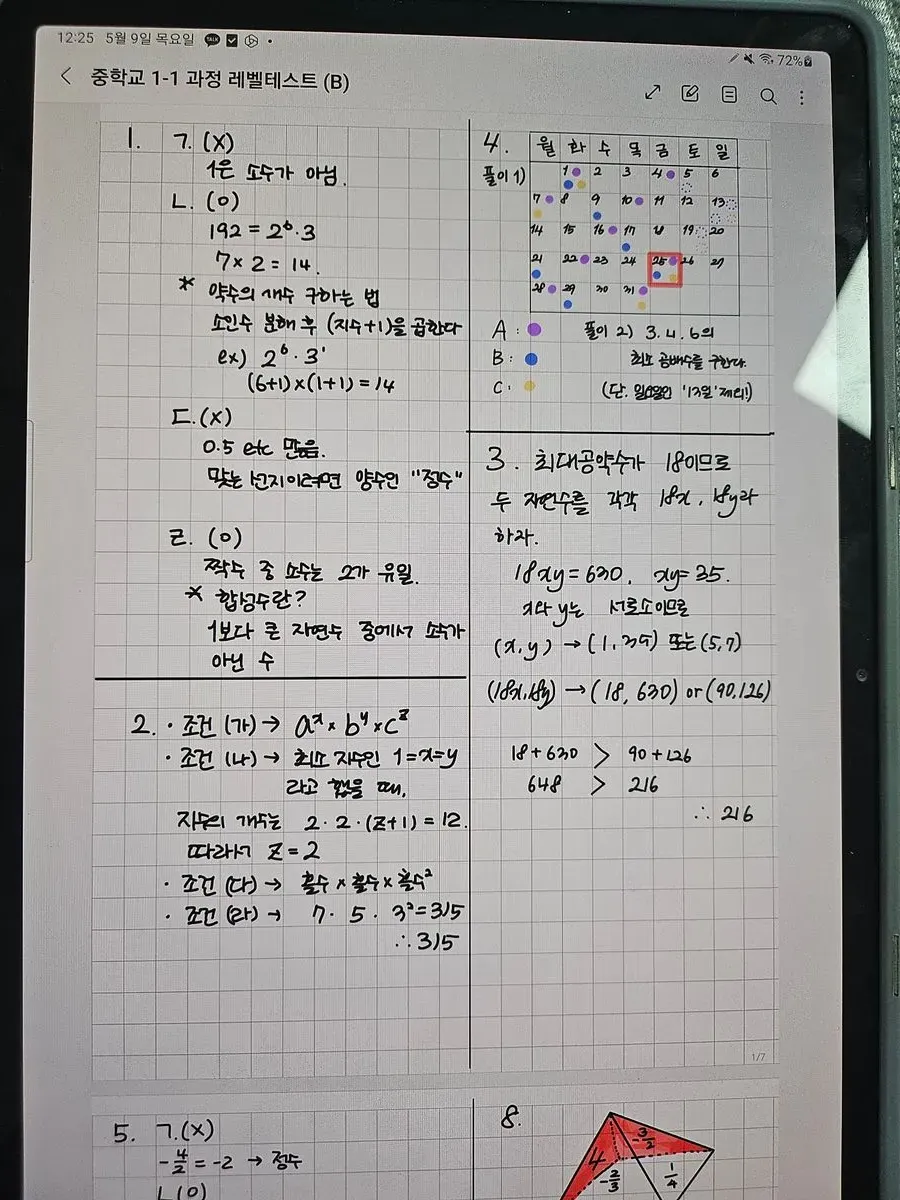 12:25 5월 9일 목요일
72%
중학교 1-1 과정 레벨테스트 (B)
1. ㄱ. (X)
1은 소수가 아님.
ㄴ. (O)
192 = 2⁶·3
7 × 2 = 14.
* 약수의 개수 구하는 법
소인수 분해 후 (지수+1)을 곱한다
ex) 2⁶·3¹
(6+1)×(1+1) = 14
ㄷ. (X)
0.5 etc 많음.
맞는 선지이려면 양수인 "정수"
ㄹ. (O)
짝수 중 소수는 2가 유일.
* 합성수란?
1보다 큰 자연수 중에서 소수가
아닌 수
2. · 조건 (가) → aˣ × bʸ × cᶻ
· 조건 (나) → 최소 지수인 1=x=y
라고 했을 때,
지수의 개수는 2·2·(z+1) = 12.
따라서 z = 2
· 조건 (다) → 홀수 × 홀수 × 홀수²
· 조건 (라) → 7 · 5 · 3² = 315
∴ 315
4.
풀이 1)
월 화 수 목 금 토 일
1 2 3 4 5 6
7 8 9 10 11 12 13
14 15 16 17 18 19 20
21 22 23 24 25 26 27
28 29 30 31
A :
B :
C :
풀이 2) 3. 4. 6의
최소 공배수를 구한다.
(단. 일요일인 '13일' 제외!)
3. 최대공약수가 18이므로
두 자연수를 각각 18x, 18y라
하자.
18xy = 630, xy = 35.
x와 y는 서로소이므로
(x, y) → (1, 35) 또는 (5, 7)
(18x, 18y) → (18, 630) or (90, 126)
18 + 630 > 90 + 126
648 > 216
∴ 216
1/7
5. ㄱ. (X)
-4/2 = -2 → 정수
ㄴ (O)
8.
4
-3/2
-2/3
1/4